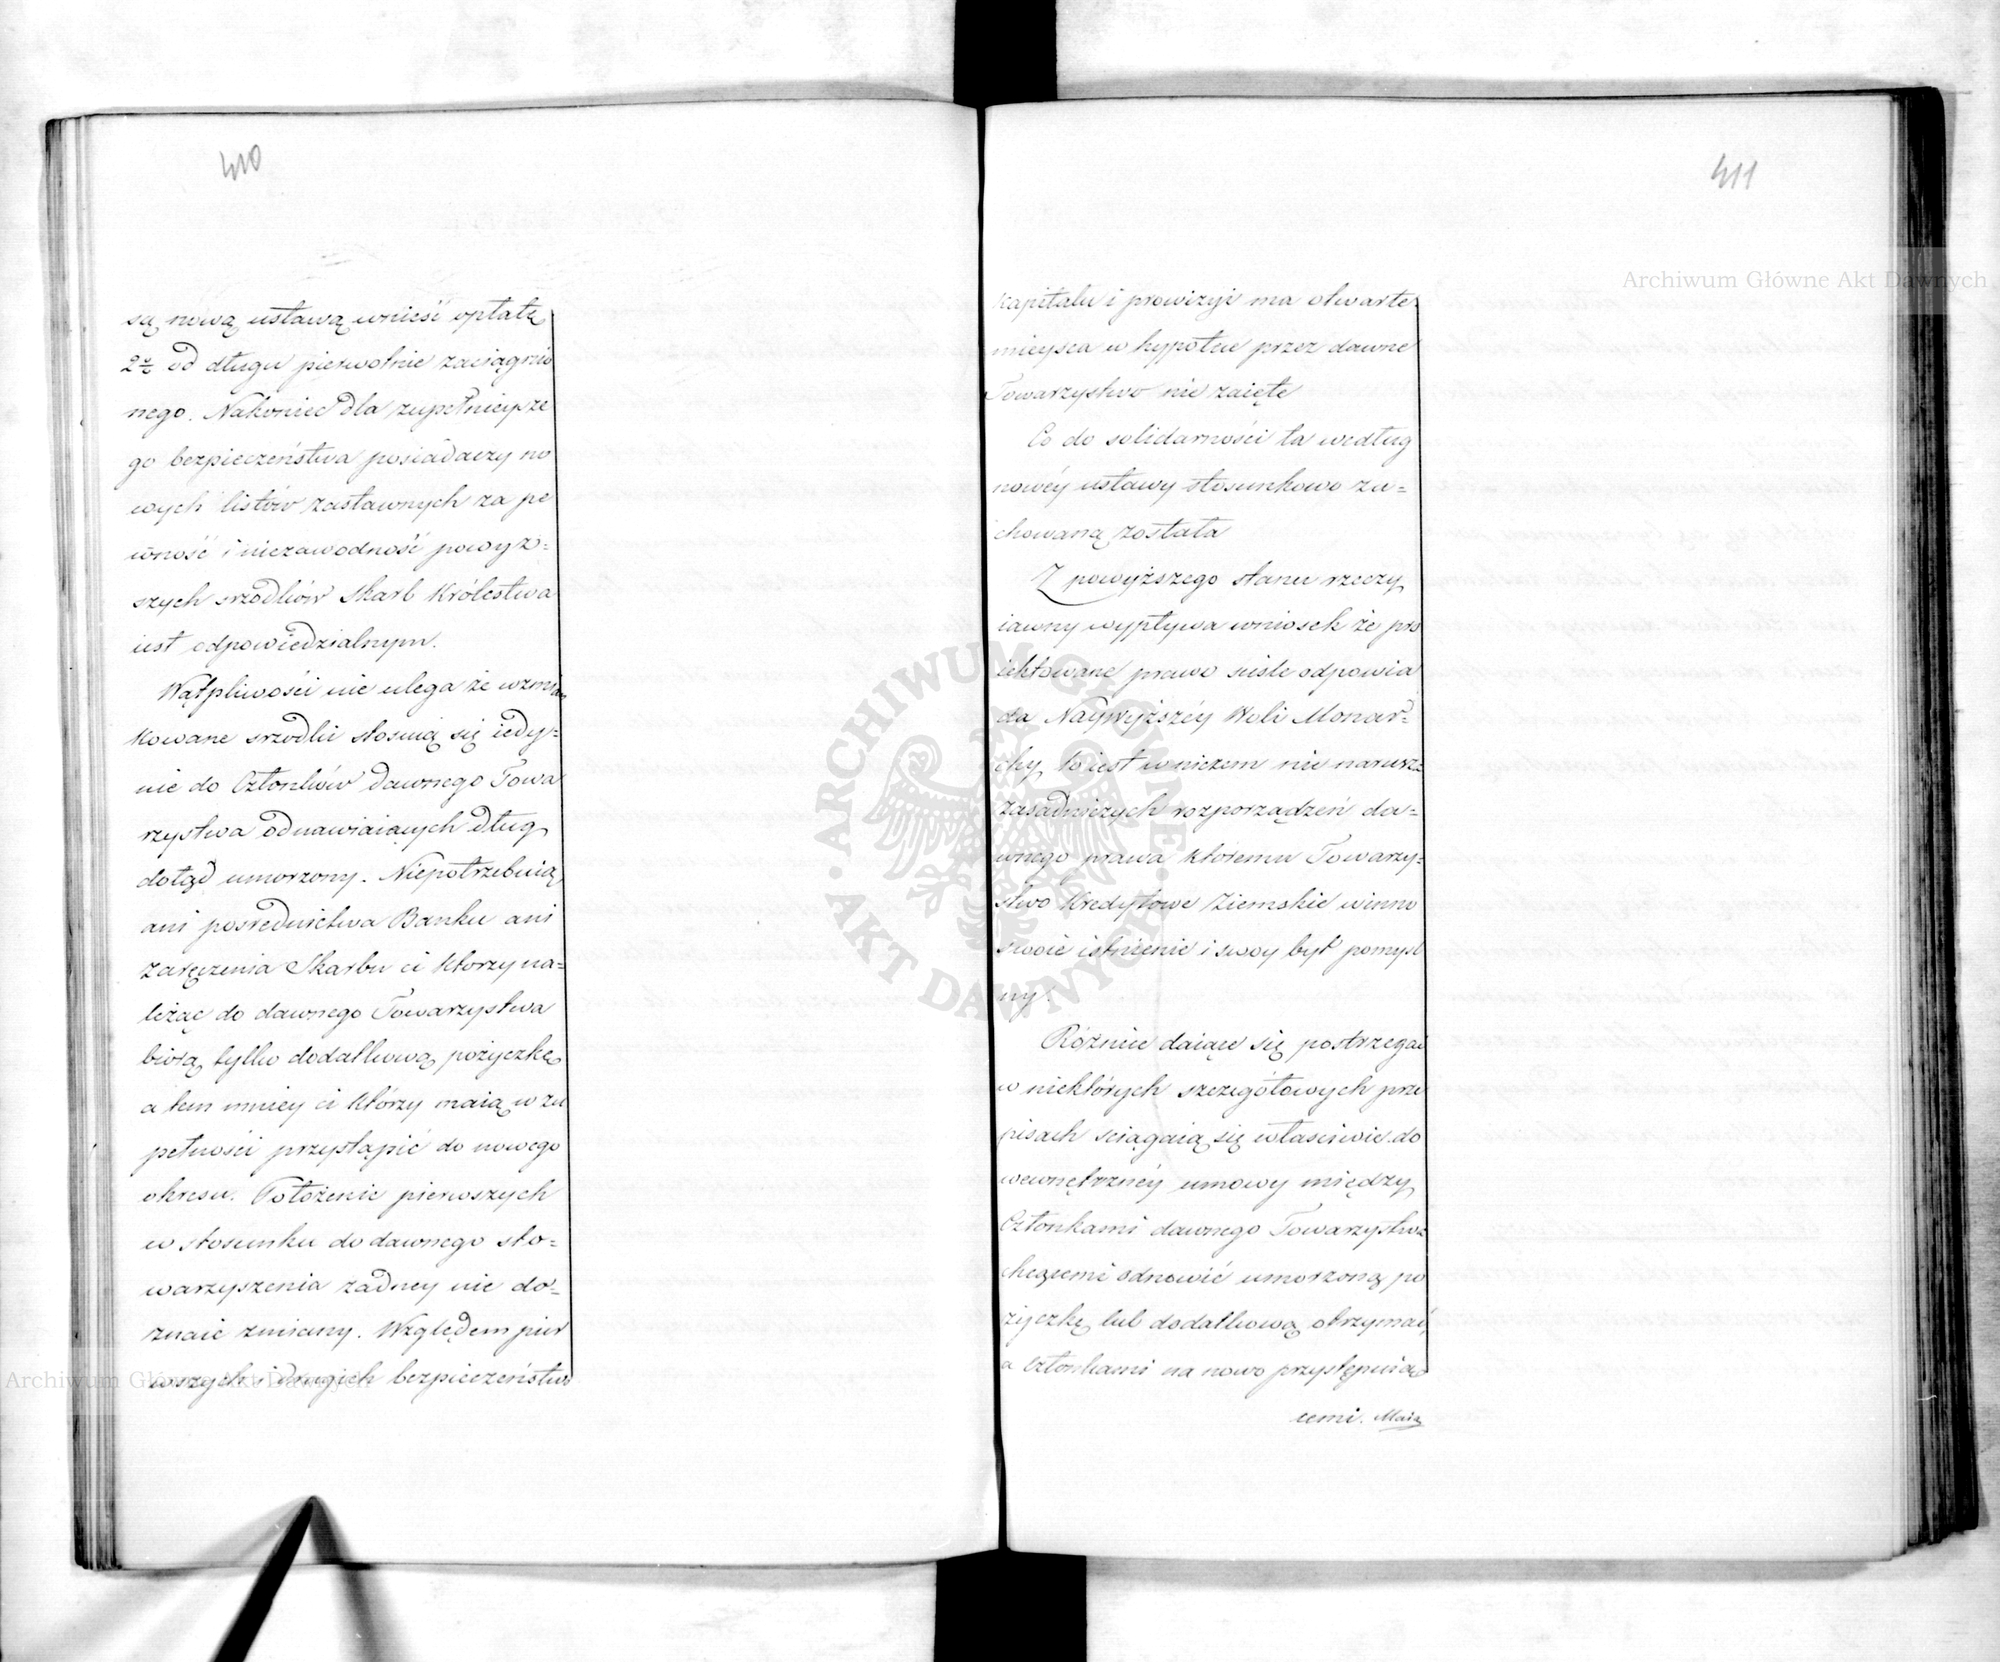 410
są nową ustawą wnieść opłatę
2% od długu pierwotnie zaciągnio
nego. Nakoniec dla zupełnieysze
go bezpieczeństwa posiadaczy no
wych listów zastawnych za pe
wność i niezawodność powyż-
szych srzodków Skarb Królestwa
iest odpowiedzialnym.
Wątpliwości nie ulega że wzmian
kowane srzodki stosuią się iedy-
nie do Członków dawnego Towa
rzystwa odnawiaiących dług
dotąd umorzony. Niepotrzebuią
ani posrednictwa Banku ani
zaręczenia Skarbu ci którzy na-
leżąc do dawnego Towarzystwa
biorą tylko dodatkową pożyczkę
a tem mniey ci którzy maią w zu
pełności przystąpić do nowego
okresu. Położenie pierwszych
w stosunku do dawnego sto-
warzyszenia żadney nie do-
znaie zmiany. Względem pier
wszych i drugich bezpieczeństwo
411
Archiwum Główne Akt Dawnych
kapitału i prowizyi ma otwarte
mieysca w hypotece przez dawne
Towarzystwo nie zaięte
Co do solidarności ta według
nowéy ustawy stosunkowo za-
chowaną została
Z powyższego stanu rzeczy
iawny wypływa wniosek że pro
iektowane prawo sciśle odpowia
da Naywyższéy Woli Monar-
chy, to iest w niczem nie narusza
zasadniczych rozporządzeń da-
wnego prawa któremu Towarzy-
stwo Kredytowe Ziemskie winno
swoie istnienie i swoy byt pomysl
ny.
Różnice daiące się postrzegać
w niektórych szczegółowych prze
pisach sciągaią się właściwie do
wewnętrznéy umowy między
Członkami dawnego Towarzystwa
chcącemi odnowić umorzoną po
życzkę lub dodatkową otrzymać,
a Członkami na nowo przystępuią
cemi. Maią
ARCHIWUM GŁÓWNE AKT DAWNYCH
Archiwum Główne Akt Dawnych